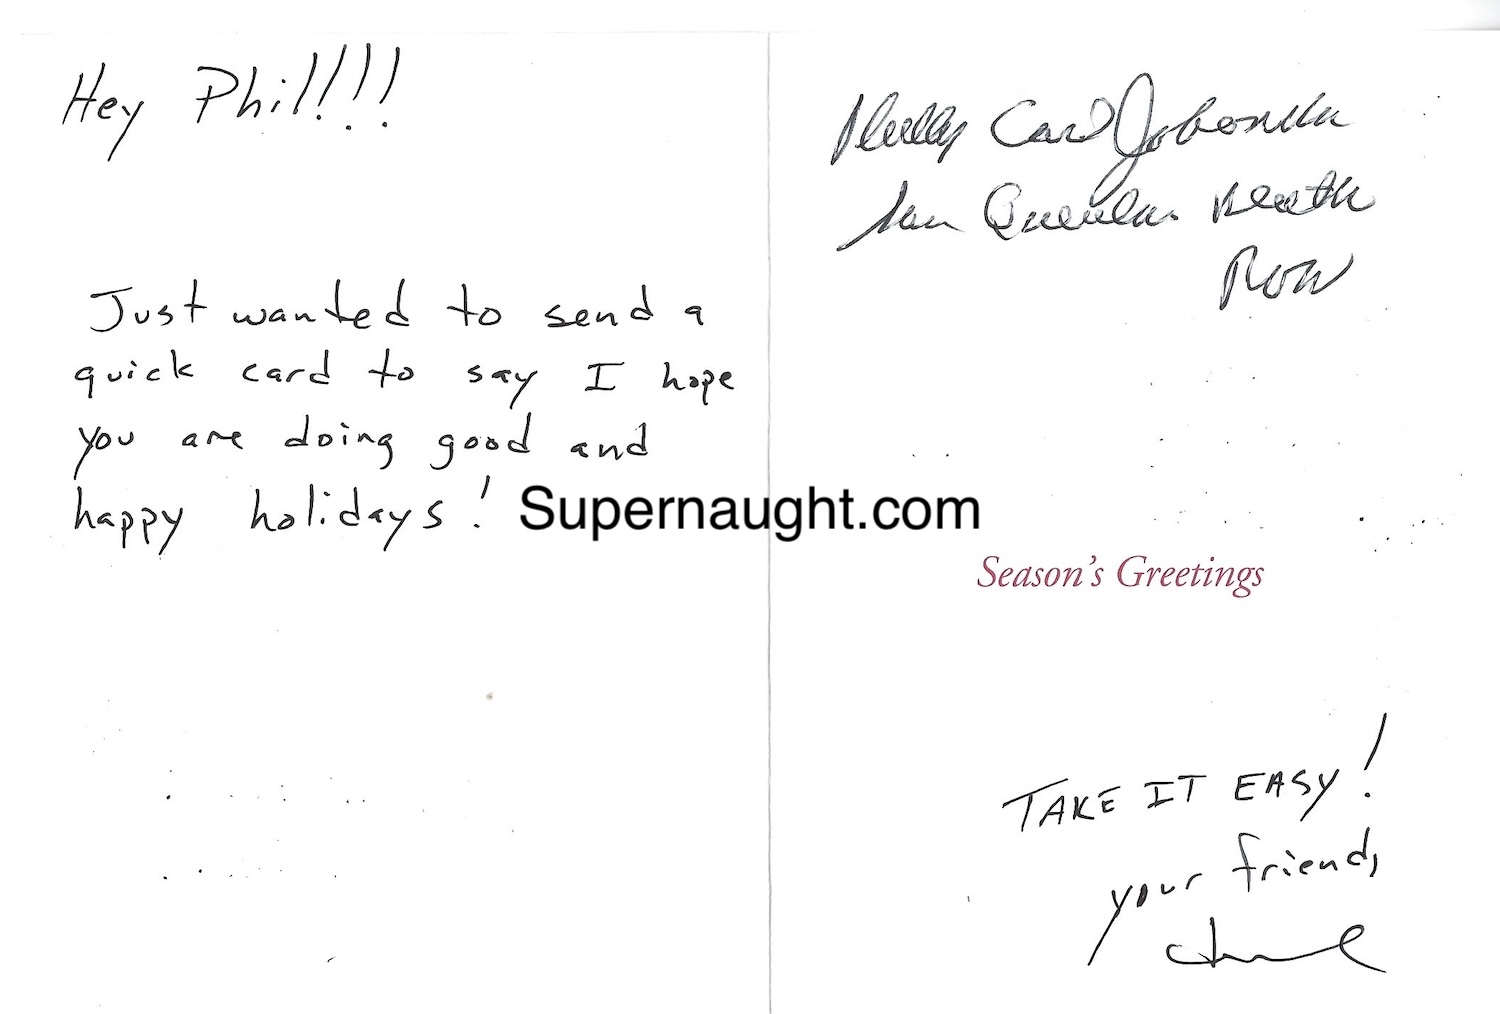 Hey Phil!!!
Just wanted to send a
quick card to say I hope
you are doing good and
happy holidays!
Supernaught.com
Carl
San Quentin Death
Row
Season's Greetings
TAKE IT EASY!
your friend,